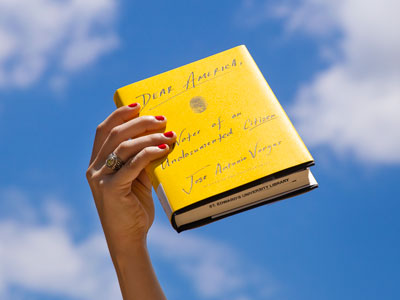 DEAR AMERICA,
Notes of an
Undocumented Citizen
Jose Antonio Vargas
ST. EDWARD'S UNIVERSITY LIBRARY